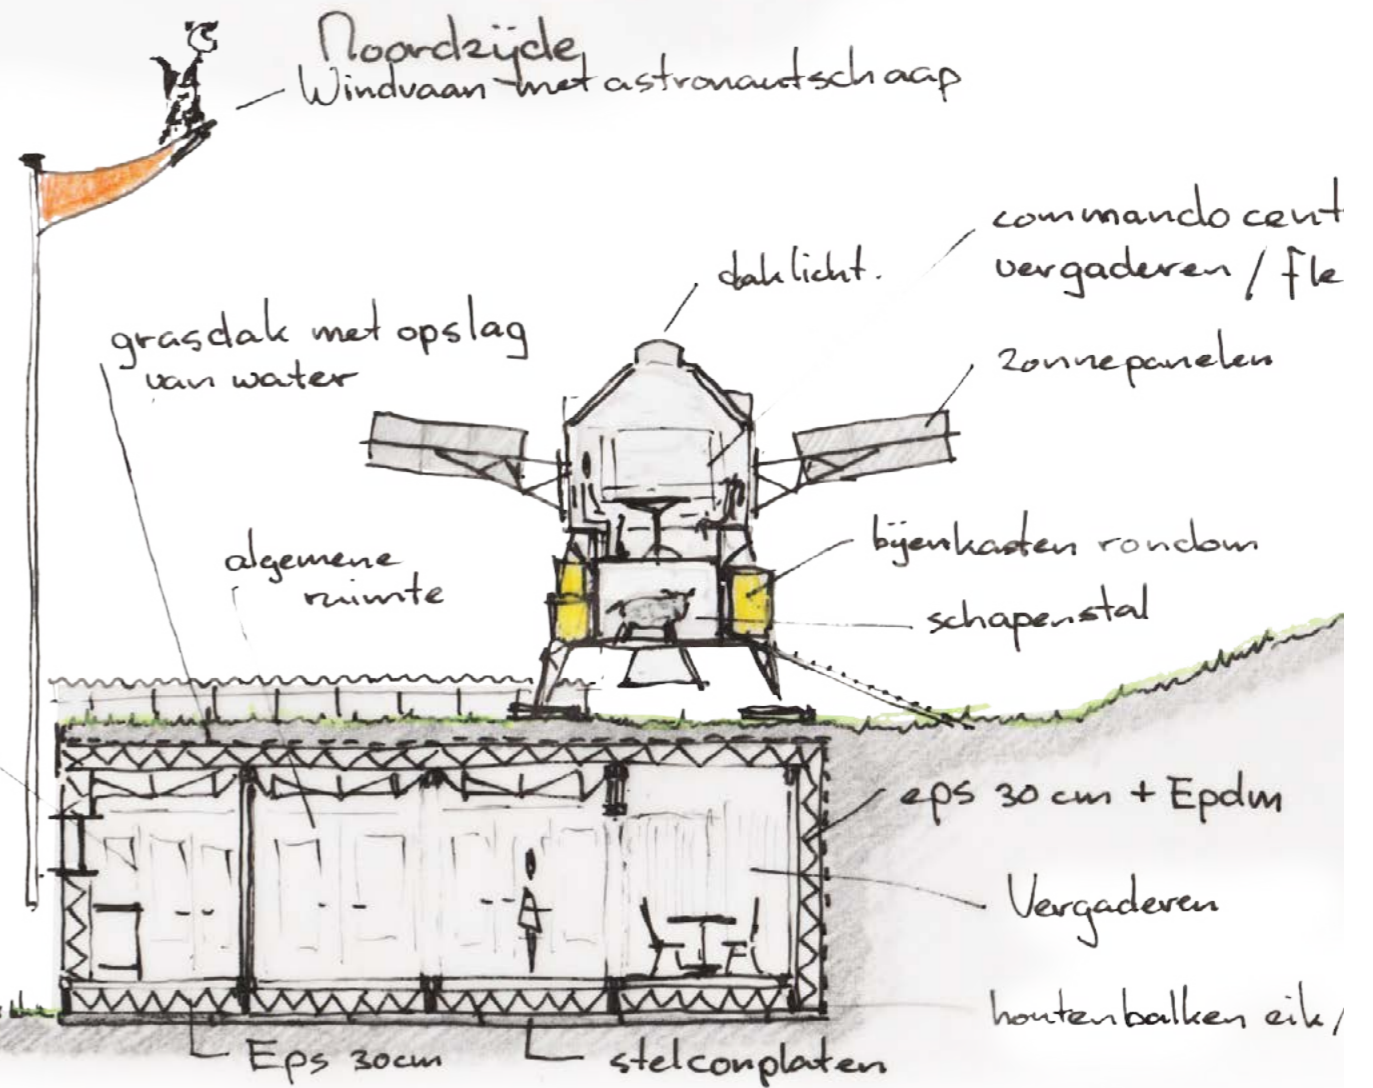 Noordzijde
Windvaan met astronautschaap
commando cent
vergaderen / fle
daklicht.
grasdak met opslag
van water
zonnepanelen
bijenkasten rondom
algemene
ruimte
schapenstal
eps 30 cm + Epdm
Vergaderen
houtenbalken eik/
Eps 30cm
stelconplaten